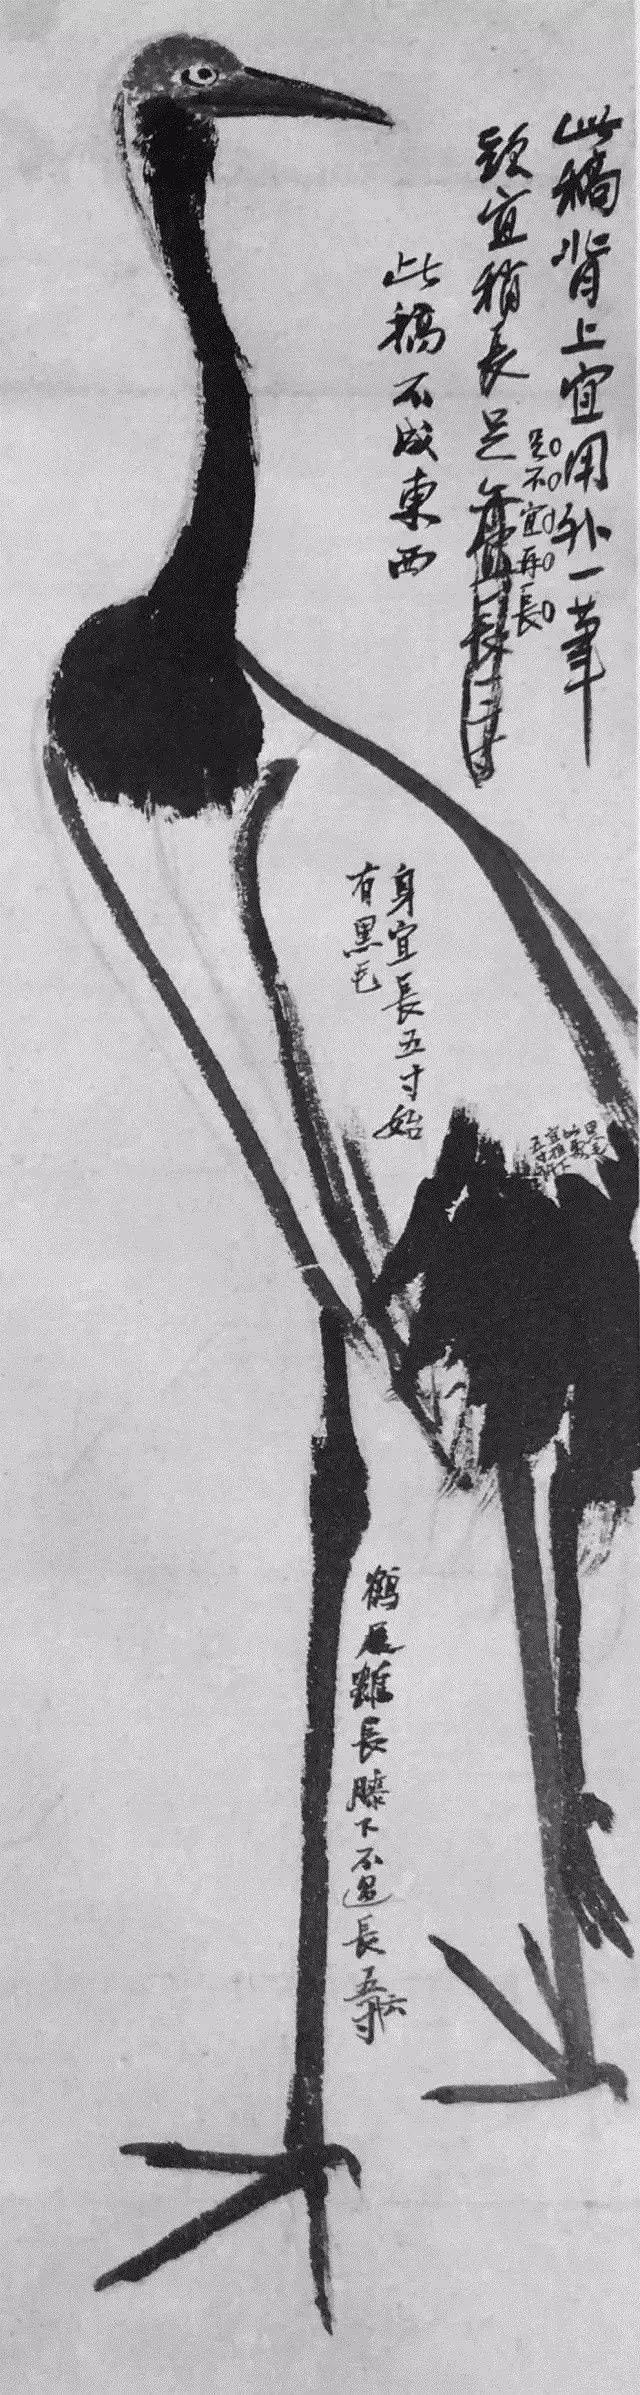 此稿背上宜用外一筆
頸宜稍長足
足不宜再長
此稿不成東西
身宜長五寸始
有黑毛
鶴足雖長膝下不過長五六寸